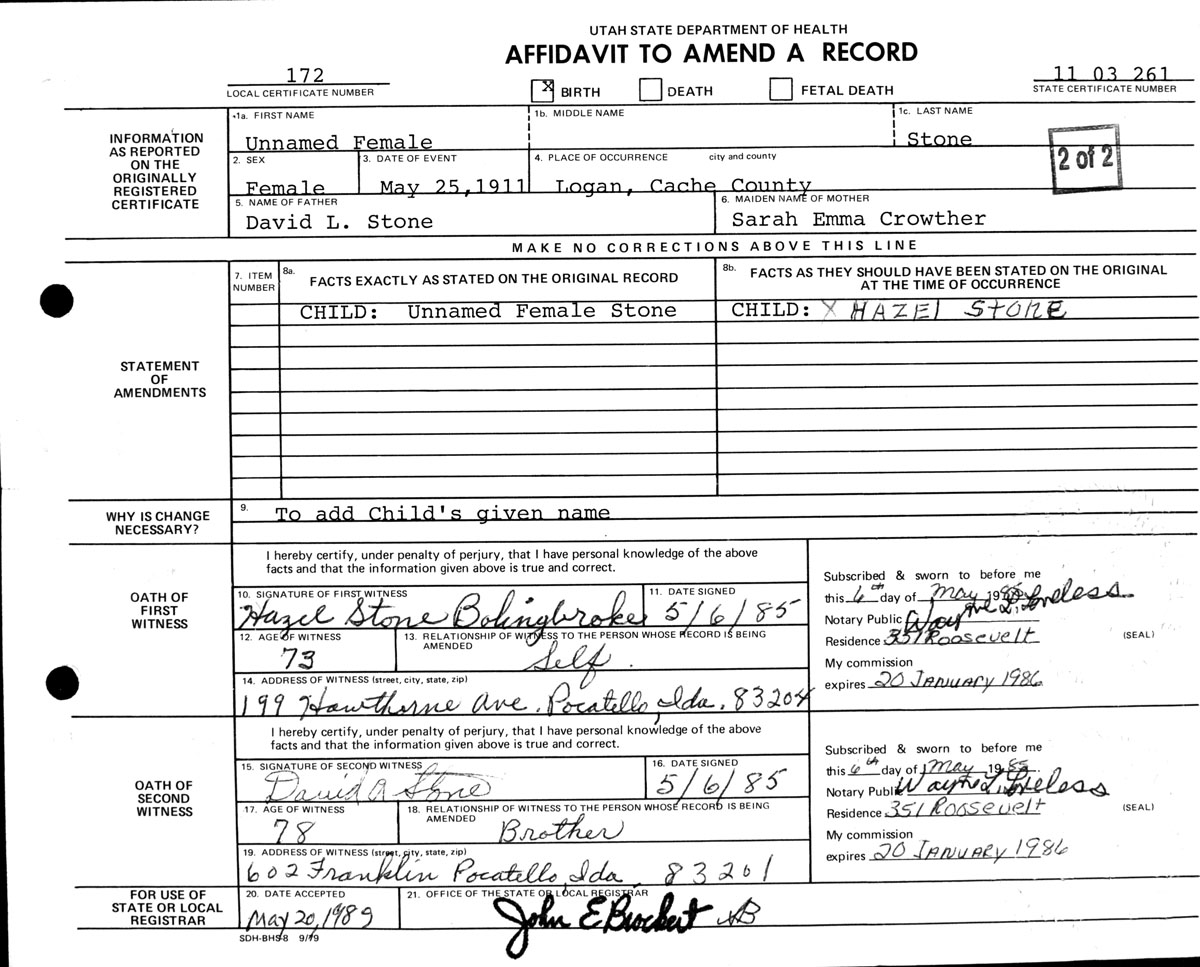 UTAH STATE DEPARTMENT OF HEALTH
AFFIDAVIT TO AMEND A RECORD
172
LOCAL CERTIFICATE NUMBER
X BIRTH DEATH FETAL DEATH
11 03 261
STATE CERTIFICATE NUMBER
INFORMATION AS REPORTED ON THE ORIGINALLY REGISTERED CERTIFICATE
1a. FIRST NAME 1b. MIDDLE NAME 1c. LAST NAME
Unnamed Female Stone
2 of 2
2. SEX 3. DATE OF EVENT 4. PLACE OF OCCURRENCE city and county
Female May 25,1911 Logan, Cache County
5. NAME OF FATHER 6. MAIDEN NAME OF MOTHER
David L. Stone Sarah Emma Crowther
MAKE NO CORRECTIONS ABOVE THIS LINE
STATEMENT OF AMENDMENTS
7. ITEM NUMBER
8a. FACTS EXACTLY AS STATED ON THE ORIGINAL RECORD
8b. FACTS AS THEY SHOULD HAVE BEEN STATED ON THE ORIGINAL
AT THE TIME OF OCCURRENCE
CHILD: Unnamed Female Stone CHILD: X HAZEl STONE
WHY IS CHANGE NECESSARY?
9. To add Child's given name
OATH OF FIRST WITNESS
I hereby certify, under penalty of perjury, that I have personal knowledge of the above
facts and that the information given above is true and correct.
10. SIGNATURE OF FIRST WITNESS 11. DATE SIGNED
Hazel Stone Bolingbroke 5/6/85
12. AGE OF WITNESS 13. RELATIONSHIP OF WITNESS TO THE PERSON WHOSE RECORD IS BEING
AMENDED
73 Self.
14. ADDRESS OF WITNESS (street, city, state, zip)
199 Hawthorne Ave. Pocatello, Ida. 83204
Subscribed & sworn to before me
this 6th day of May 1985
Notary Public Wayne L. Loveless
Residence 351 Roosevelt
(SEAL)
My commission
expires 20 JANUARY 1986
OATH OF SECOND WITNESS
I hereby certify, under penalty of perjury, that I have personal knowledge of the above
facts and that the information given above is true and correct.
15. SIGNATURE OF SECOND WITNESS 16. DATE SIGNED
David A Stone 5/6/85
17. AGE OF WITNESS 18. RELATIONSHIP OF WITNESS TO THE PERSON WHOSE RECORD IS BEING
AMENDED
78 Brother
19. ADDRESS OF WITNESS (street, city, state, zip)
602 Franklin Pocatello, Ida 83201
Subscribed & sworn to before me
this 6th day of May 1985
Notary Public Wayne L. Loveless
Residence 351 Roosevelt
(SEAL)
My commission
expires 20 JANUARY 1986
FOR USE OF STATE OR LOCAL REGISTRAR
20. DATE ACCEPTED 21. OFFICE OF THE STATE OR LOCAL REGISTRAR
May 20, 1985 John E Brockert
SDH-BHS-8 9/79